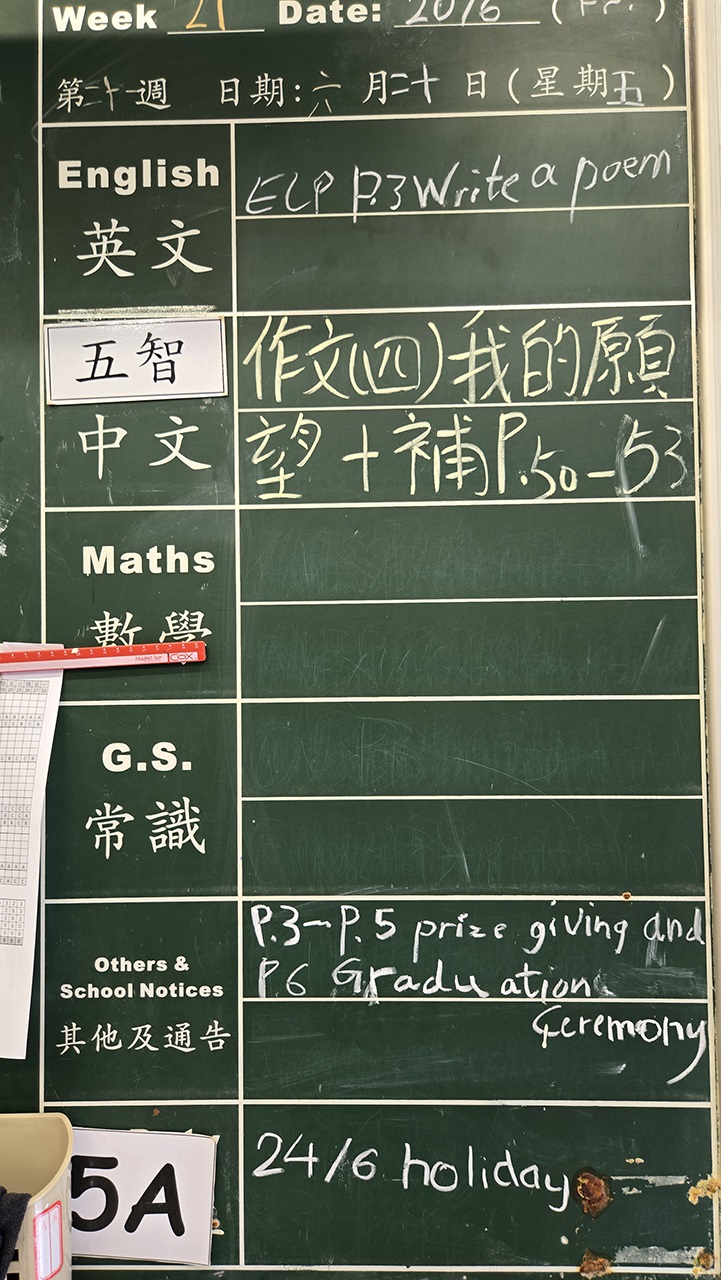 Week 21 Date: 20/6 (Fri.)
第二十一週 日期:六月二十日(星期五)
English
ELP P.3 Write a poem
英文
五智
作文(四)我的願
中文
望+補P.50-53
Maths
數學
COX
G.S.
常識
Others &
School Notices
其他及通告
P.3-P.5 prize giving and
P6 Graduation
Ceremony
5A
24/6 holiday